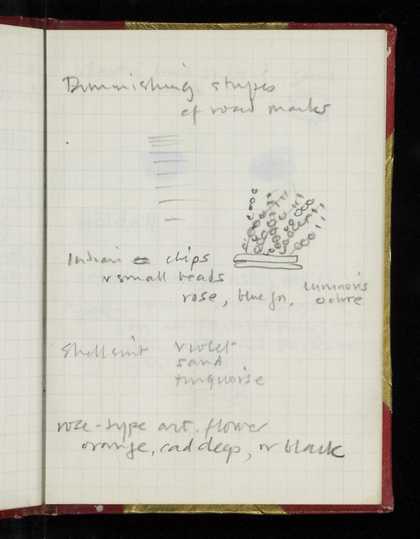 Diminishing stripes
of road marks
Indian chips
v small beads
rose, blue gn, luminous
ochre
violet
sand
turquoise
rose-type art. flower
orange, cad deep, or black